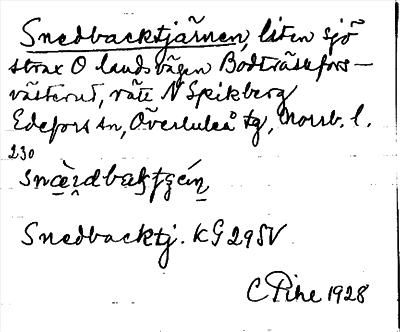 Snedbacktjärnen, liten sjö
strax O landsvägen Bodträskfors—
västerut, rätt N Spikberg
Edefors sn, Överluleå tg, Norrb. l.
230
Snedbacktj. KG 29 SV
C Pihe 1928